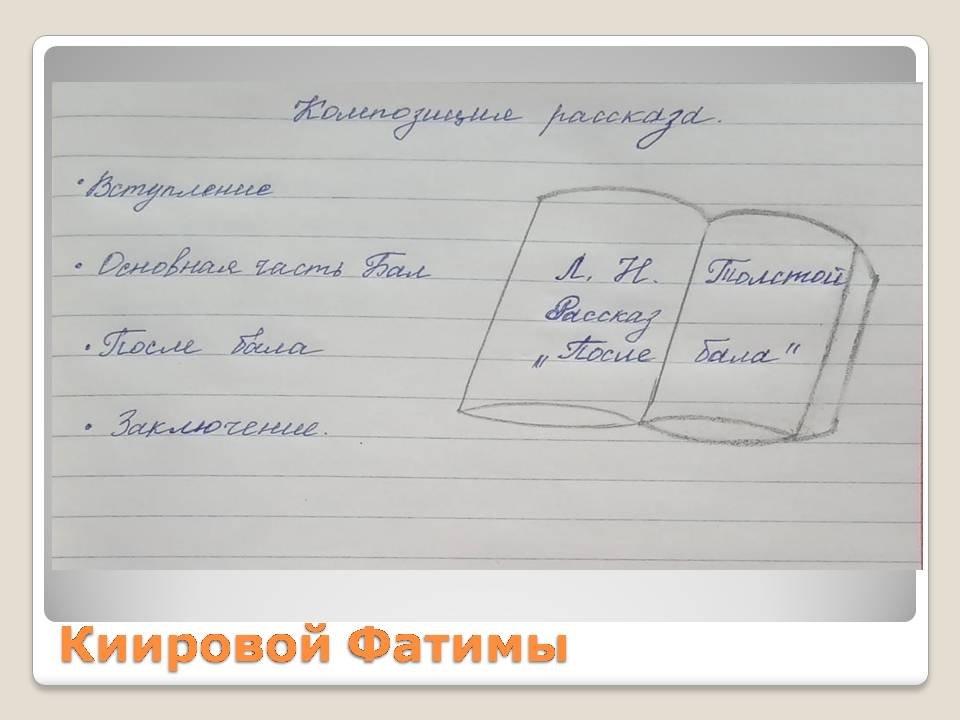 Композиция рассказа.
• Вступление
• Основная часть Бал
• После бала
• Заключение.
Л. Н. Толстой
Рассказ
„После бала"
Киировой Фатимы